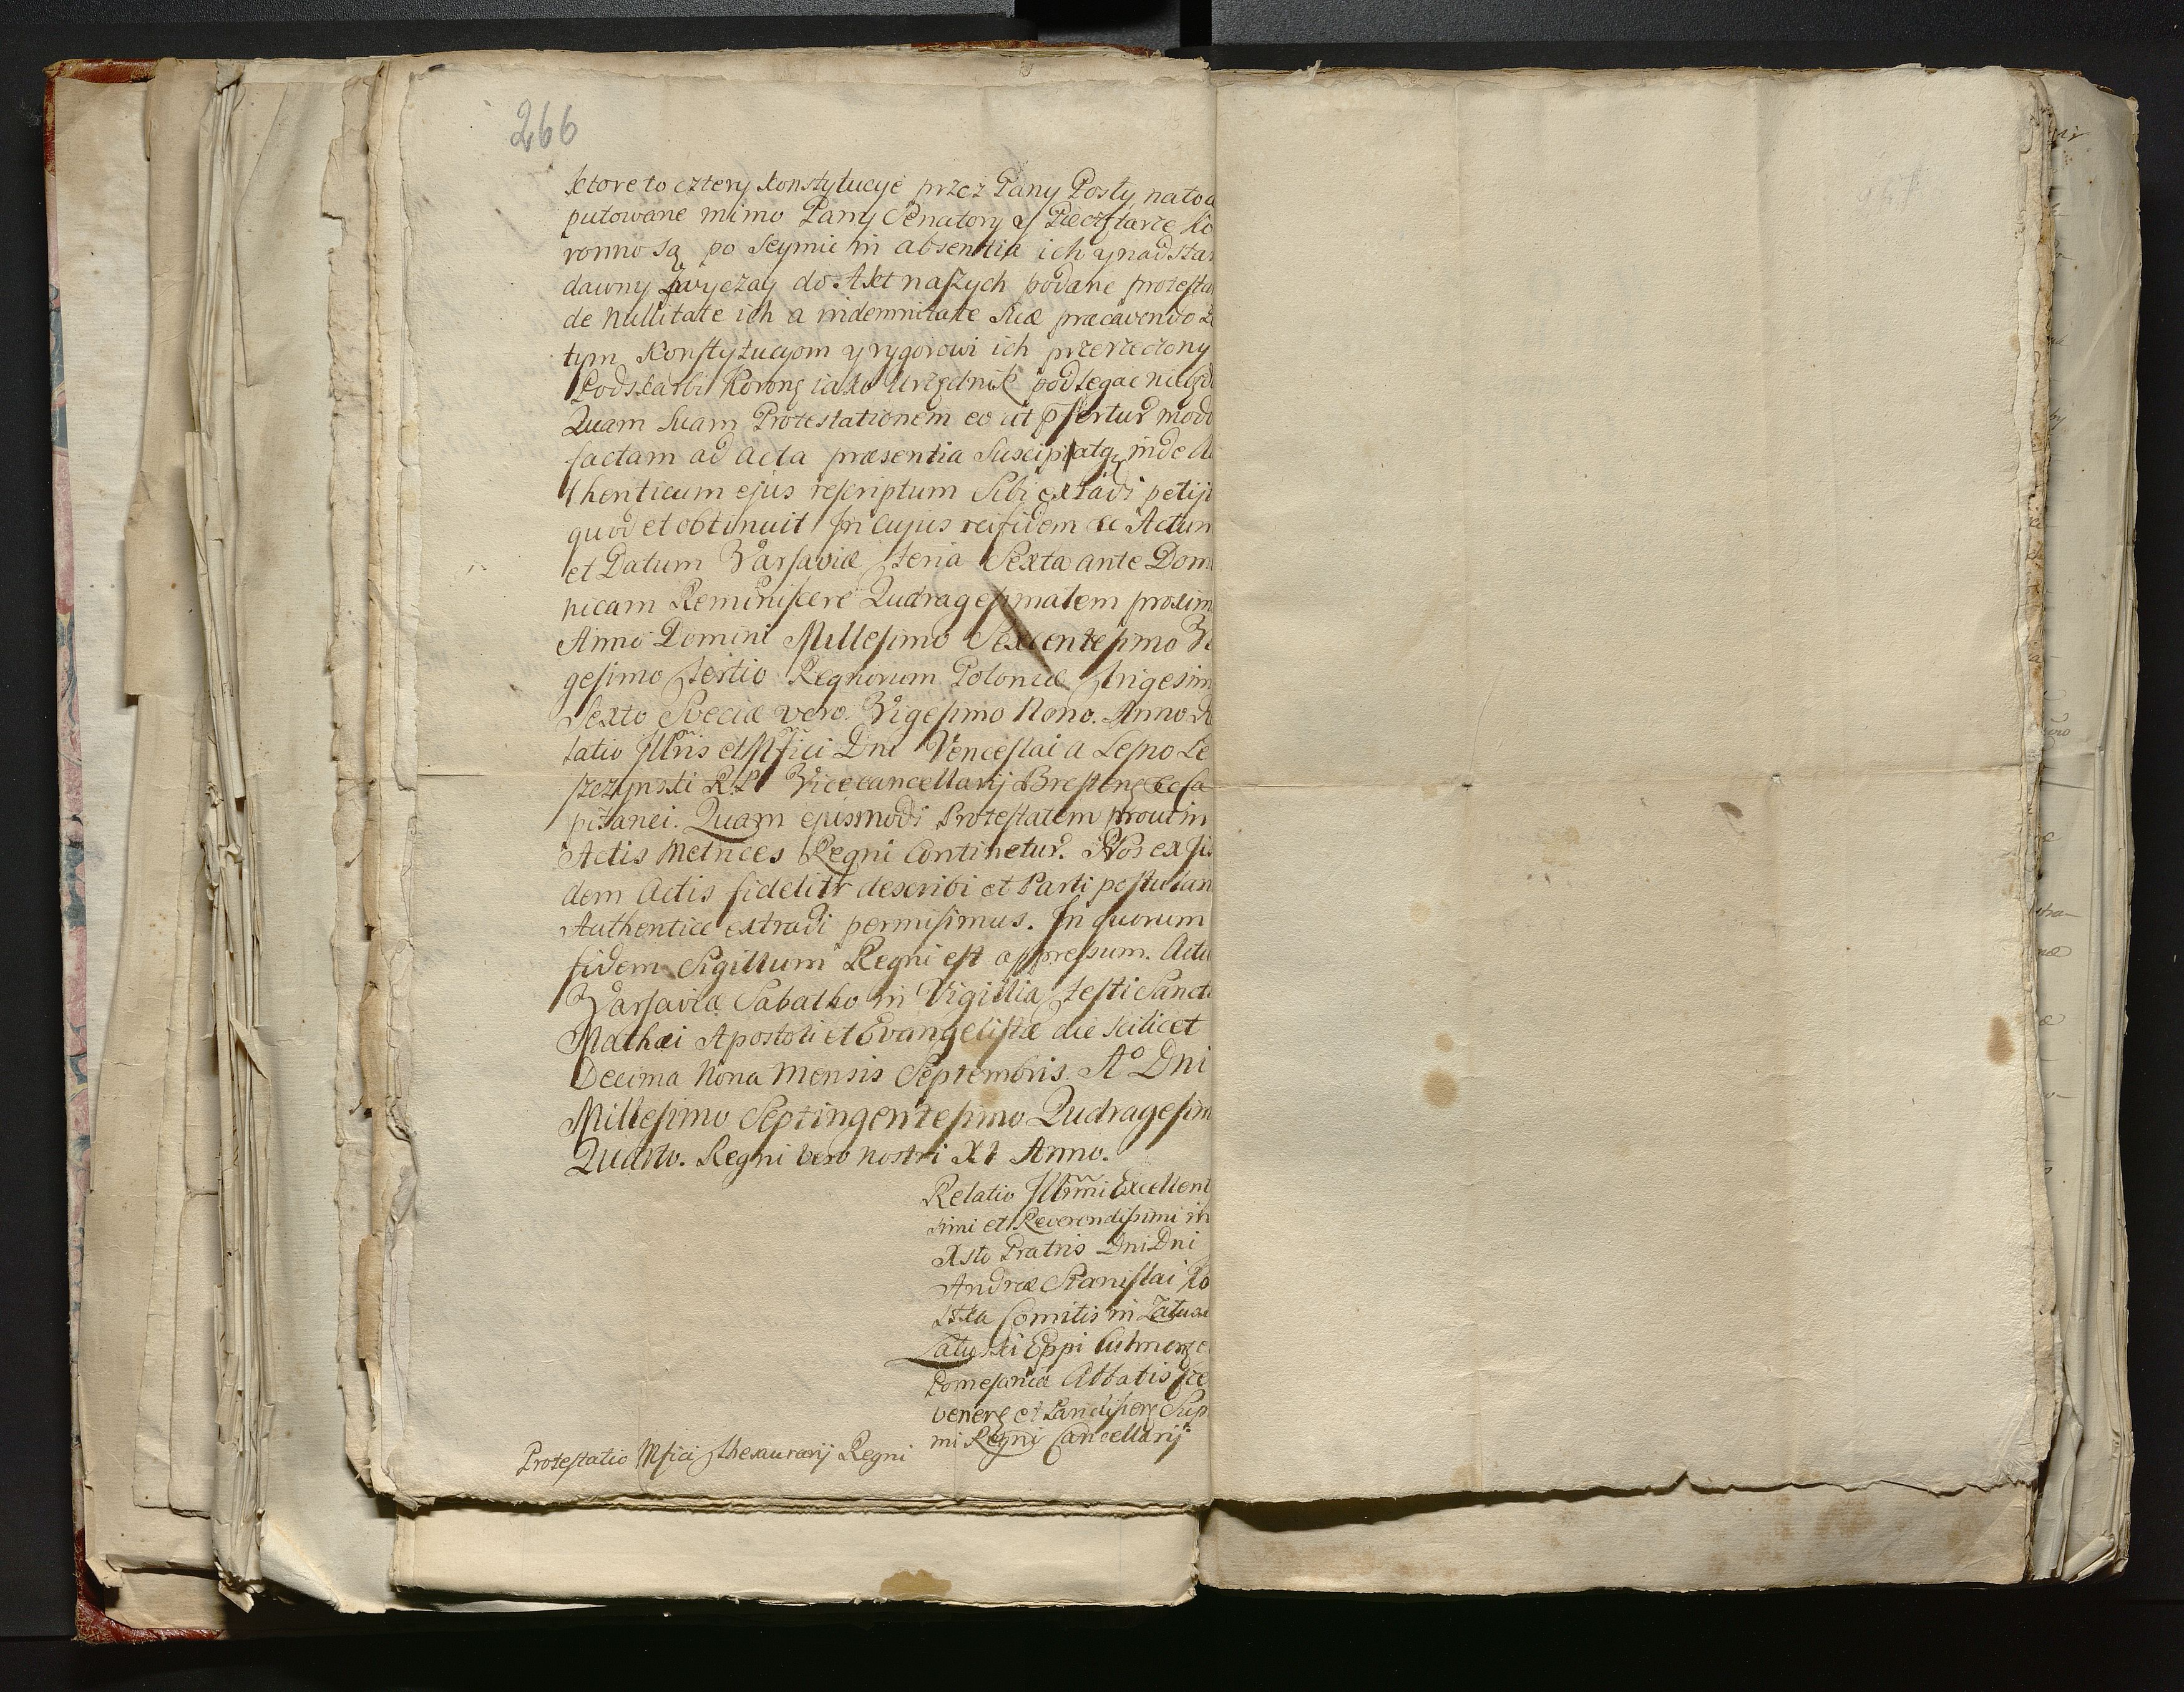 266
ktore to cztery Konstytucye przez Pany Posły, na to d
putowane mimo Pany Senatory y Pieczętarze Ko
ronno są po Seymie in absentia ich y nad sta
dawny zwyczay do Akt naszych podane protestu
de nullitate ich a indemnitate suæ præcavendo
tym Konstytucyom y rygorowi ich przerzeczony
Podskarbi Koronę iako Urzędnik podlegac nie
Quam suam Protestationem eo ut pfertur modo
factam ad acta præsentia suscipi atq inde Au
thenticum ejus rescriptum Sibi extradi petiji
quod et obtinuit In cujus rei fidem &c Actum
et Datum Varsaviæ feria Sexta ante Domi
nicam Reminiscere Qudragesimalem proxim
Anno Domini Millesimo Sexcentesimo Vi
gesimo tertio Regnorum Poloniæ trigesim
Sexto Sveciæ vero Vigesimo Nono. Anno Re
latio Illris et Mfici Dni Venceslai a Lesno Le
szczynski R.P. Vicecancellarij Brestenę &c Ca
pitanei. Quam ejusmodi Protestatem prout in
Actis Metrices Regni Continetur. Nos ex iis
dem Actis fidelitr describi et Parti postulan
Authentice extradi permisimus. In quorum
fidem Sigillum Regni est appressum. Actu
Varsaviæ Sabatho in Vigillia festi Sancti
Mathæi Apostoli et Evangelistæ die scilicet
Decima Nona Mensis Septembris. Aº Dni
Millesimo Septingentesimo Qudragesim
Quarto. Regni vero nostri XI Anno.
Relatio Illrmi Excellent
simi et Reverendissimi in
Xsto Pratris Dni Dni
Andreæ Stanislai Ko
stka Comitis in Załusk
Załuski Eppi Culmenę e
Pomesaniæ Abbatis
venenę et Paradisienę Sup
mi Regni Cancellarij
Protestatio Mfici thesaurarij Regni